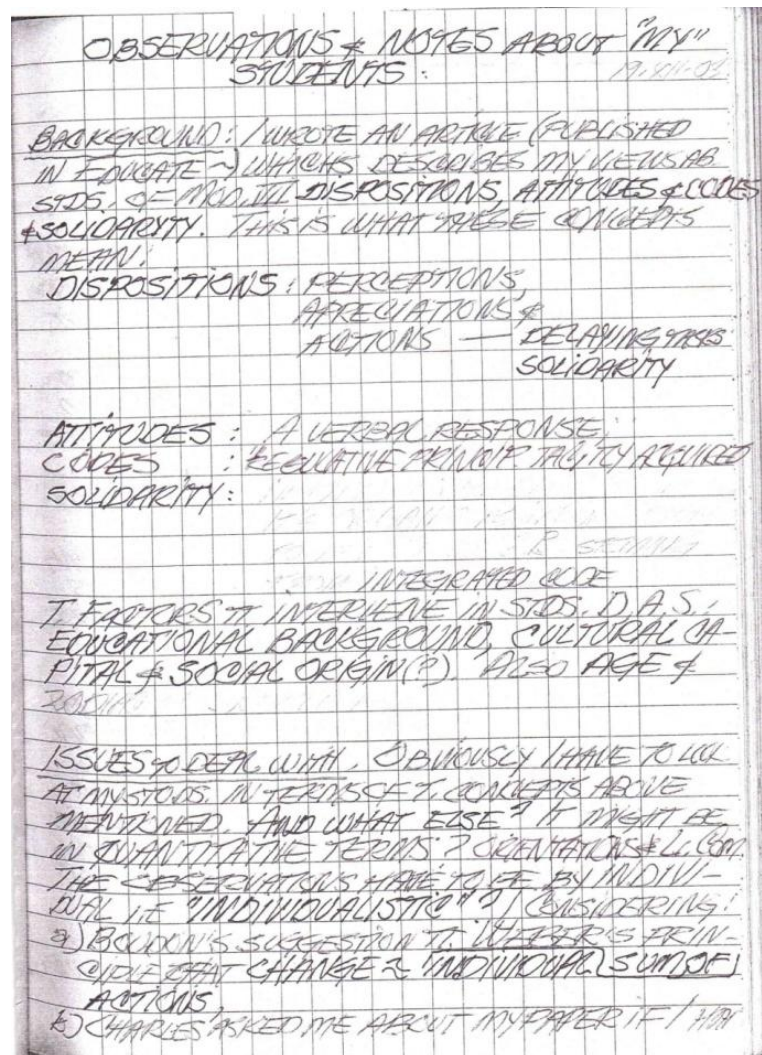 OBSERVATIONS & NOTES ABOUT "MY"
STUDENTS.
19-XII-03
BACKGROUND: I WROTE AN ARTICLE (PUBLISHED
IN EDUCATE ~) WHICHS DESCRIBES MY VIEWS AB
STDS. OF MOD. VII DISPOSITIONS, ATTITUDES & CODES
& SOLIDARYTY. THIS IS WHAT THESE CONCEPTS
MEAN:
DISPOSITIONS: PERCEPTIONS,
APRECIATIONS &
ACTIONS — DELAYING TASKS
SOLIDARITY
ATTITUDES: A VERBAL RESPONSE,
CODES : REGULATIVE PRINCIP TACITLY AQUIRED
SOLIDARITY:
INTEGRATED CODE
T. FACTORS TT INTERVENE IN STDS. D.A.S.:
EDUCATIONAL BACKGROUND, CULTURAL CA-
PITAL & SOCIAL ORIGIN(?). ALSO AGE &
ISSUES TO DEAL WITH. OBVIOUSLY I HAVE TO LOOK
AT MY STUDS. IN TERMS OF T. CONCEPTS ABOVE
MENTIONED. AND WHAT ELSE? IT MIGHT BE
IN QUANTITATIVE TERMS? ORIENTATIONS & L. COM.
THE OBSERVATIONS HAVE TO BE BY INDIVI-
DUAL I.E "INDIVIDUALISTIC"? CONSIDERING:
a) BOUDON'S SUGGESTION TT WEBER'S PRIN-
CIPLE THAT CHANGE ~ INDIVIDUAL (SUM OF)
ACTIONS,
b) CHARLES ASKED ME ABOUT MY PAPER IF I